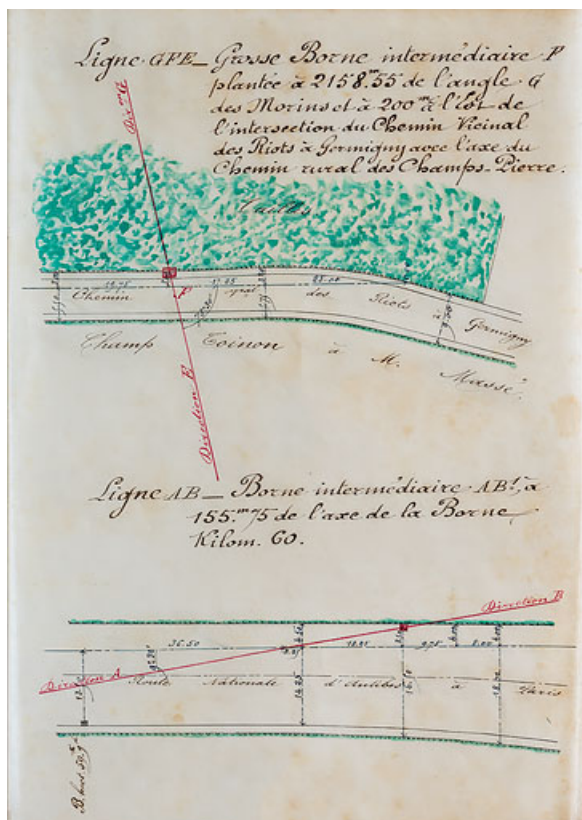 Ligne GFE_ Grosse Borne intermédiaire F
plantée à 2158.m55 de l'angle G
des Morins et à 200m à l'Est de
l'intersection du Chemin Vicinal
des Riots à Germigny avec l'axe du
Chemin rural des Champs-Pierre.
Don G
Taillis
19.75 17.25 25.00
Chemin des Riots à Germigny
F
Champ Toinon à M. Massé
Direction E
Ligne AB_ Borne intermédiaire AB1, à
155.m75 de l'axe de la Borne
Kilom. 60.
Direction B
36.50 9.75 8.00
Direction A
Route Nationale d'Antibes à Paris